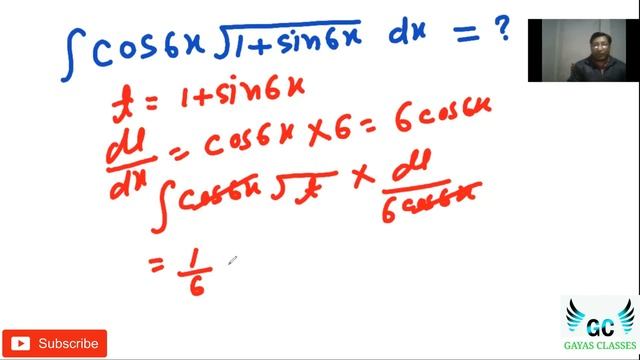 ∫ cos6x √1+sin6x dx = ?
t = 1+sin6x
dt/dx = cos6x × 6 = 6cos6x
∫ cos6x √t × dt/6cos6x
= 1/6
Subscribe
GC
GAYAS CLASSES